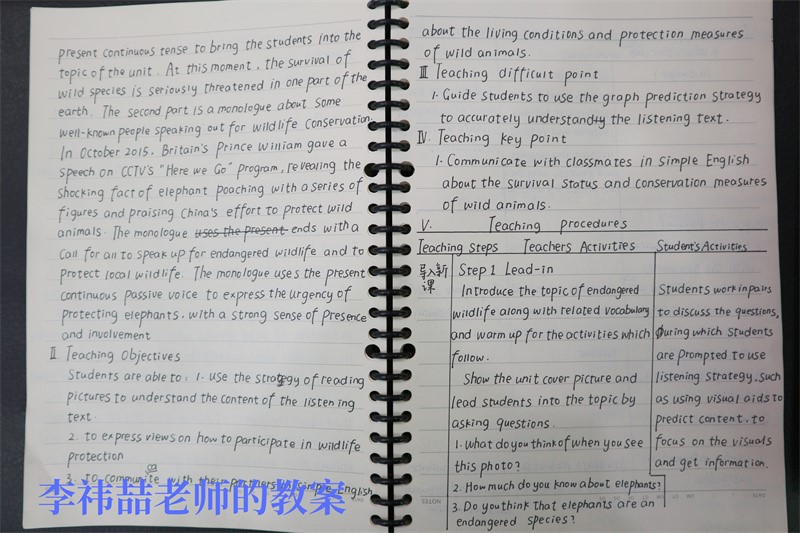 present continuous tense to bring the students into the
topic of the unit. At this moment, the survival of
wild species is seriously threatened in one part of the
earth. The second part is a monologue about some
well-known people speaking out for wildlife conservation.
In October 2015, Britain's Prince William gave a
speech on CCTV's "Here we Go" program, revealing the
shocking fact of elephant poaching with a series of
figures and praising China's effort to protect wild
animals. The monologue uses the present ends with a
call for all to speak up for endangered wildlife and to
protect local wildlife. The monologue uses the present
continuous passive voice to express the urgency of
protecting elephants, with a strong sense of presence
and involvement
II Teaching Objectives
Students are able to: 1. use the strategy of reading
pictures to understand the content of the listening
text.
2. to express views on how to participate in wildlife
protection
3. to communicate with their partners in simple English
李祎喆老师的教案
about the living conditions and protection measures
of wild animals.
III Teaching difficult point
1. Guide students to use the graph prediction strategy
to accurately understand the listening text.
IV. Teaching key point
1. Communicate with classmates in simple English
about the survival status and conservation measures
of wild animals.
V. Teaching procedures
Teaching Steps Teachers Activities Student's Activities
导入新课
Step 1 Lead-in
Introduce the topic of endangered
wildlife along with related vocabulary
and warm up for the activities which
follow.
Show the unit cover picture and
lead students into the topic by
asking questions.
1. What do you think of when you see
this photo?
2. How much do you know about elephants?
3. Do you think that elephants are an
endangered species?
Students work in pairs
to discuss the questions,
During which students
are prompted to use
listening strategy, such
as using visual aids to
predict content, to
focus on the visuals
and get information.
NOTES
DATE